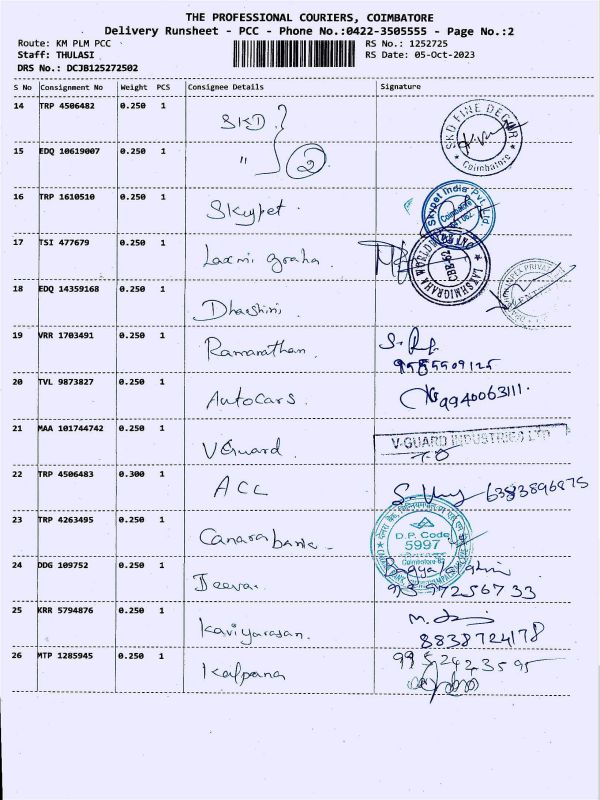 THE PROFESSIONAL COURIERS, COIMBATORE
Delivery Runsheet - PCC - Phone No.:0422-3505555 - Page No.:2
Route: KM PLM PCC RS No.: 1252725
Staff: THULASI RS Date: 05-Oct-2023
DRS No.: DCJB125272502
S No Consignment No Weight PCS Consignee Details Signature
14 TRP 4506482 0.250 1 SKD SKD FINE DECOR Coimbatore
15 EDQ 10619007 0.250 1 " 2
16 TRP 1610510 0.250 1 Skypet. Skypet India Pvt. Ltd. Coimbatore
17 TSI 477679 0.250 1 Laxmi graha. LAKSHMIGRAHA WORLDWIDE
18 EDQ 14359168 0.250 1 Dharshini.
19 VRR 1703491 0.250 1 Ramanathan.
20 TVL 9873827 0.250 1 AutoCars. 9940063111.
21 MAA 101744742 0.250 1 VGuard. V-GUARD INDUSTRIES LTD
22 TRP 4506483 0.300 1 ACC 6383896875
23 TRP 4263495 0.250 1 Canara bank. D.P. Code 5997
24 DDG 109752 0.250 1 Jeeva.
25 KRR 5794876 0.250 1 Kaviyarasan. 8838724178
26 MTP 1285945 0.250 1 Kalpana 9952423595